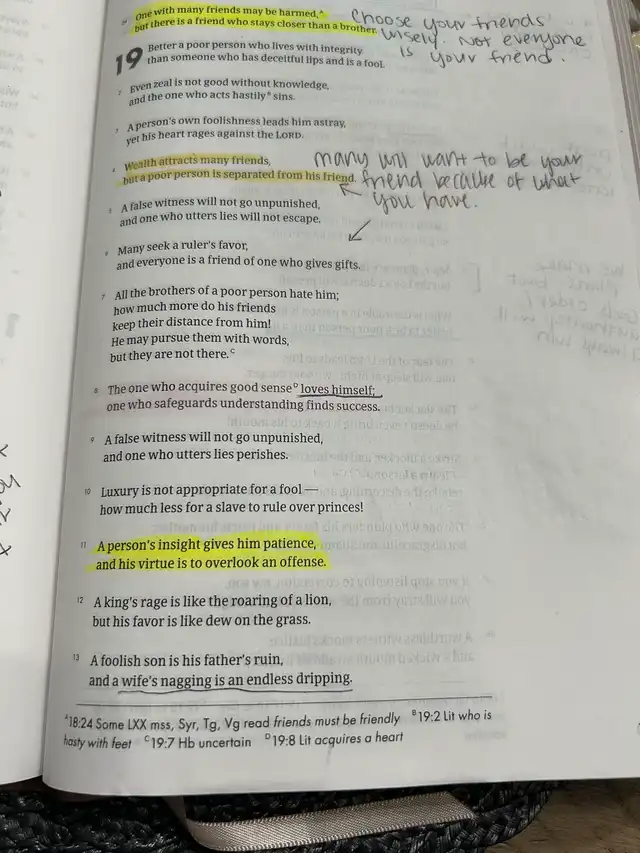 24 One with many friends may be harmed,ᴬ
but there is a friend who stays closer than a brother.
Choose your friends
wisely. Not everyone
is your friend.
19 Better a poor person who lives with integrity
than someone who has deceitful lips and is a fool.
2 Even zeal is not good without knowledge,
and the one who acts hastilyᴮ sins.
3 A person's own foolishness leads him astray,
yet his heart rages against the LORD.
4 Wealth attracts many friends,
but a poor person is separated from his friend.
many will want to be your
friend because of what
you have.
5 A false witness will not go unpunished,
and one who utters lies will not escape.
6 Many seek a ruler's favor,
and everyone is a friend of one who gives gifts.
7 All the brothers of a poor person hate him;
how much more do his friends
keep their distance from him!
He may pursue them with words,
but they are not there.ᶜ
8 The one who acquires good senseᴰ loves himself;
one who safeguards understanding finds success.
9 A false witness will not go unpunished,
and one who utters lies perishes.
10 Luxury is not appropriate for a fool —
how much less for a slave to rule over princes!
11 A person's insight gives him patience,
and his virtue is to overlook an offense.
12 A king's rage is like the roaring of a lion,
but his favor is like dew on the grass.
13 A foolish son is his father's ruin,
and a wife's nagging is an endless dripping.
ᴬ18:24 Some LXX mss, Syr, Tg, Vg read friends must be friendly ᴮ19:2 Lit who is
hasty with feet ᶜ19:7 Hb uncertain ᴰ19:8 Lit acquires a heart